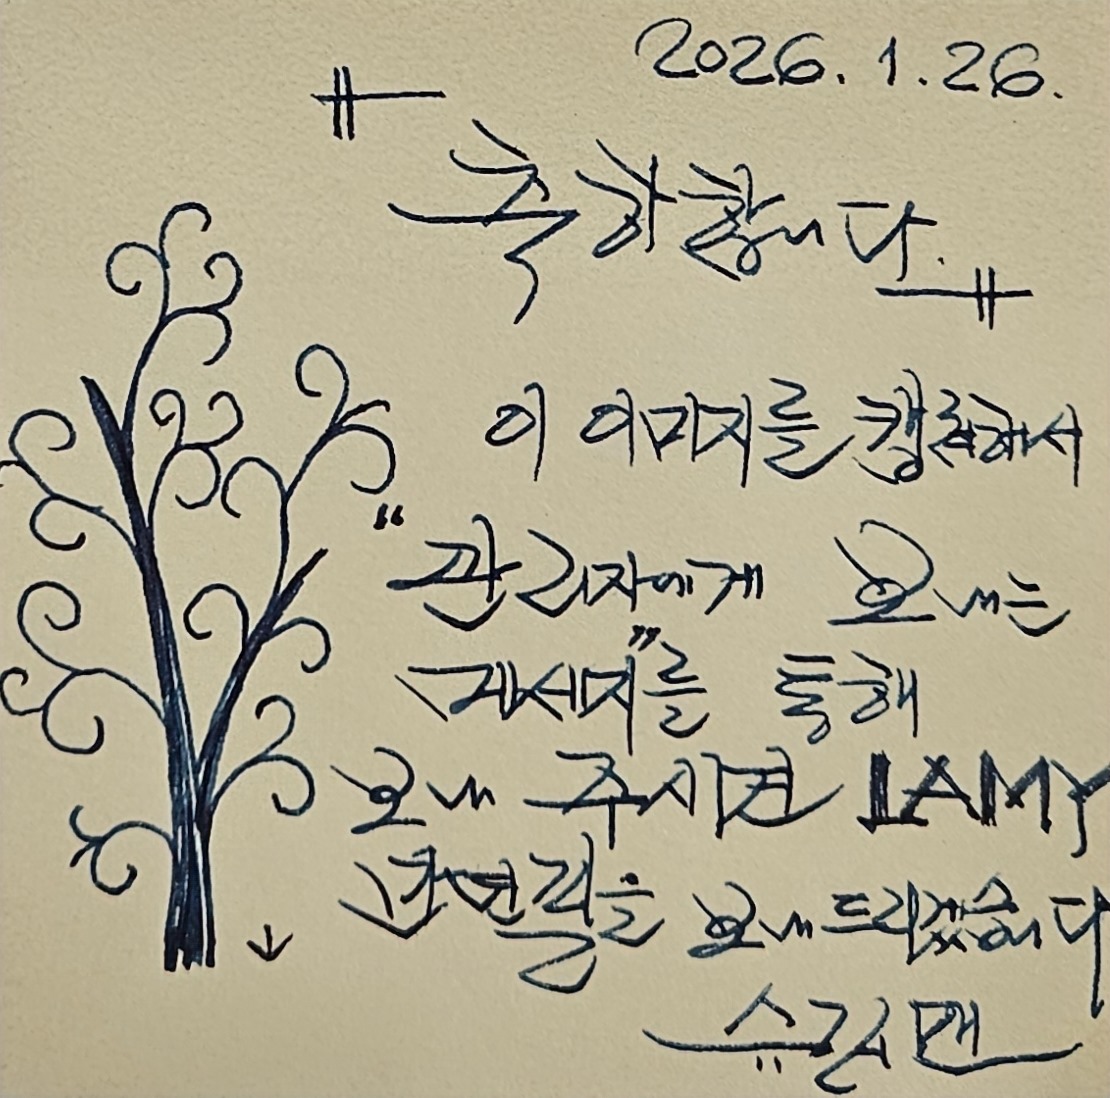 2026. 1. 26.
축하합니다.
이 이미지를 캡쳐해서
"관리자에게 보내는
메세지"를 통해
보내 주시면 LAMY
만년필을 보내드리겠습니다